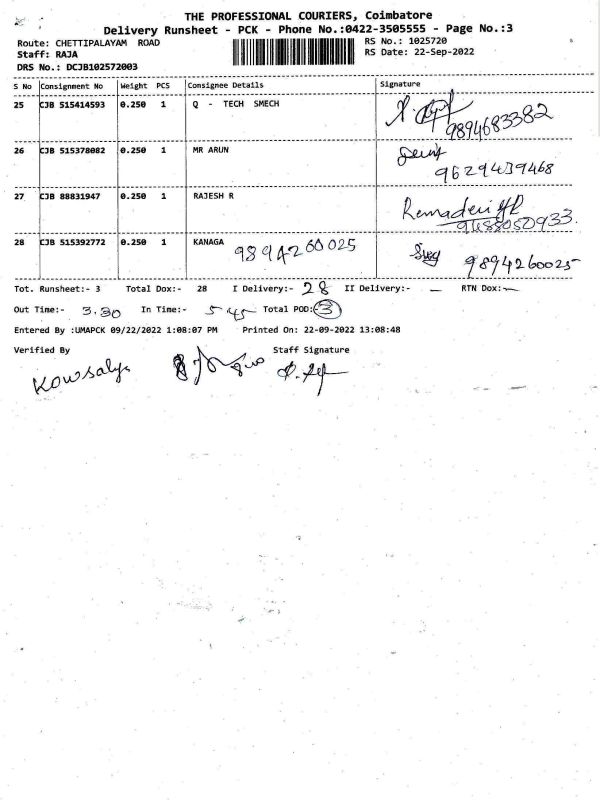 THE PROFESSIONAL COURIERS, Coimbatore
Delivery Runsheet - PCK - Phone No.:0422-3505555 - Page No.:3
Route: CHETTIPALAYAM ROAD
RS No.: 1025720
Staff: RAJA
RS Date: 22-Sep-2022
DRS No.: DCJB102572003
S No Consignment No Weight PCS Consignee Details Signature
25 CJB 515414593 0.250 1 Q - TECH SMECH
9894683382
26 CJB 515378082 0.250 1 MR ARUN
9629439468
27 CJB 88831947 0.250 1 RAJESH R
9488050933
28 CJB 515392772 0.250 1 KANAGA 9894260025
9894260025
Tot. Runsheet:- 3 Total Dox:- 28 I Delivery:- 28 II Delivery:- — RTN Dox:- —
Out Time:- 3.30 In Time:- 5 45 Total POD:- 3
Entered By :UMAPCK 09/22/2022 1:08:07 PM Printed On: 22-09-2022 13:08:48
Verified By Staff Signature
Kowsalya